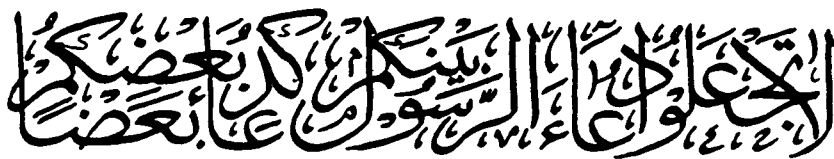 لا تجعلوا دعاء الرسول بينكم كدعاء بعضكم بعضا